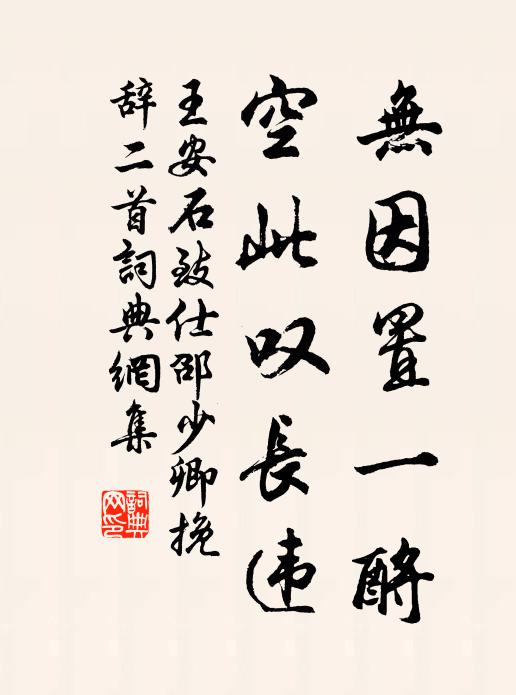 無因置一酹
空此叹長违
王安石致仕邵少卿挽
辞二首詞典網集
詞典
网印